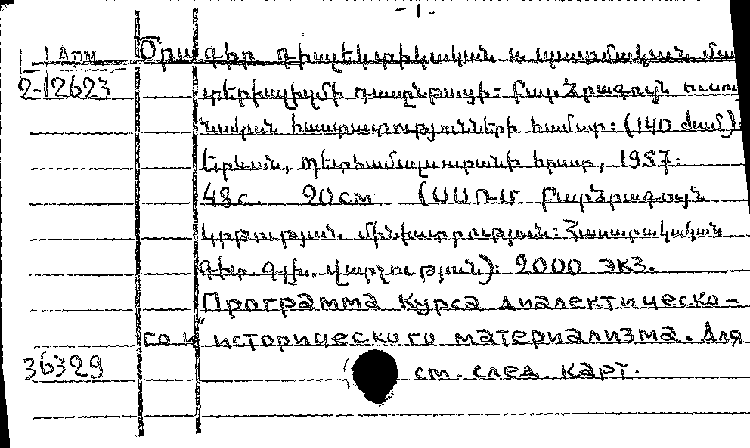 - 1 -
1 Арм Ծրագիր դիալեկտիկական և պատմական մա
2-12623 տերիալիզմի դասընթացի: Բարձրագույն ուսում
նական հաստատությունների համար: (140 ժամ)
Երևան, Պետհամալսարանի հրատ, 1957.
48 с. 20 см (ՍՍՌՄ Բարձրագույն
կրթության մինիստրություն: Հասարակական
գիտ. գլխ. վարչություն): 2000 экз.
Программа курса диалектическо-
го и исторического материализма. Для
36329 см. след. карт.